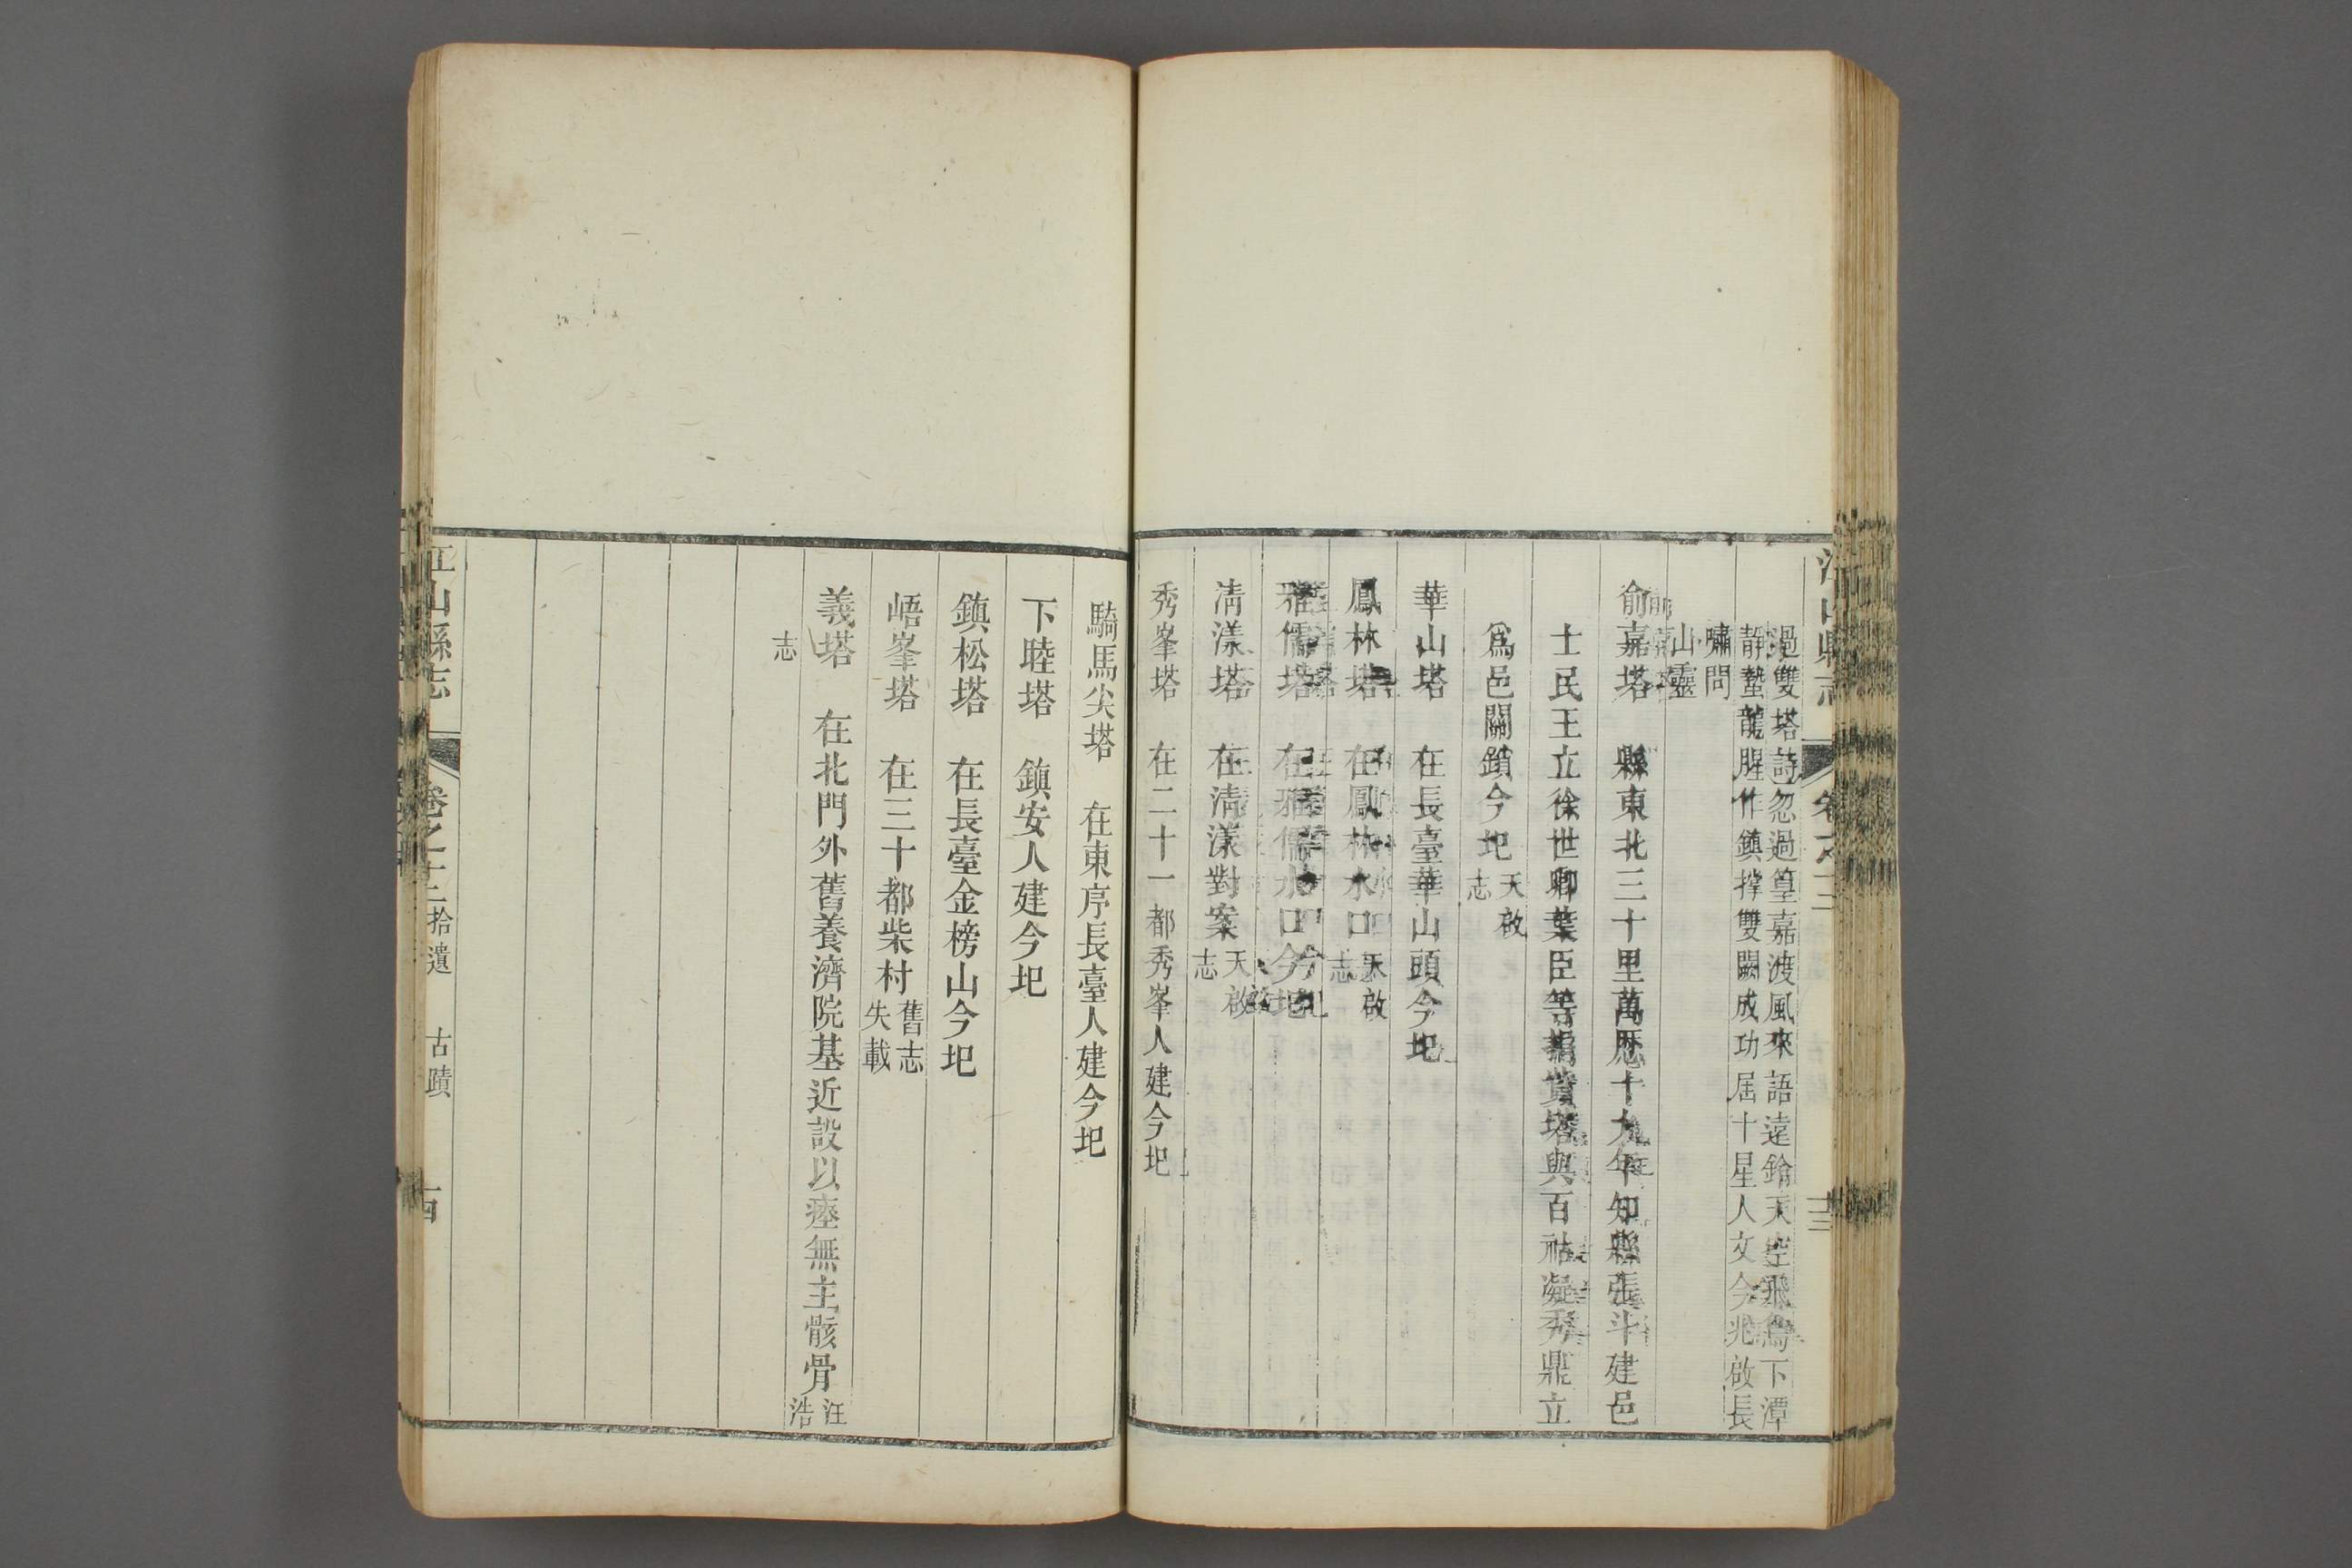 江山縣志
卷之十二
十三
過雙塔詩忽過篁嘉渡風來語遠鈴天空飛鳥下潭
靜蟄龍腥作鎮撑雙闕成功屆十星人文今兆啟長
嘯問
山靈
俞嘉塔 縣東北三十里萬歷十九年知縣張斗建邑
士民王立徐世卿葉臣等捐貲塔與百祜凝秀鼎立
爲邑關鎖今圯天啟志
華山塔 在長臺華山頭今圯
鳳林塔 在鳳林水口天啟志
雅儒塔 在雅儒水口今圯
清漾塔 在清漾對案天啟志
秀峯塔 在二十一都秀峯人建今圯
騎馬尖塔 在東序長臺人建今圯
下睦塔 鎮安人建今圯
鎮松塔 在長臺金榜山今圯
峿峯塔 在三十都柴村舊志失載
義塔 在北門外舊養濟院基近設以瘞無主骸骨汪浩
志
江山縣志
卷之十二 拾遺 古蹟
十四